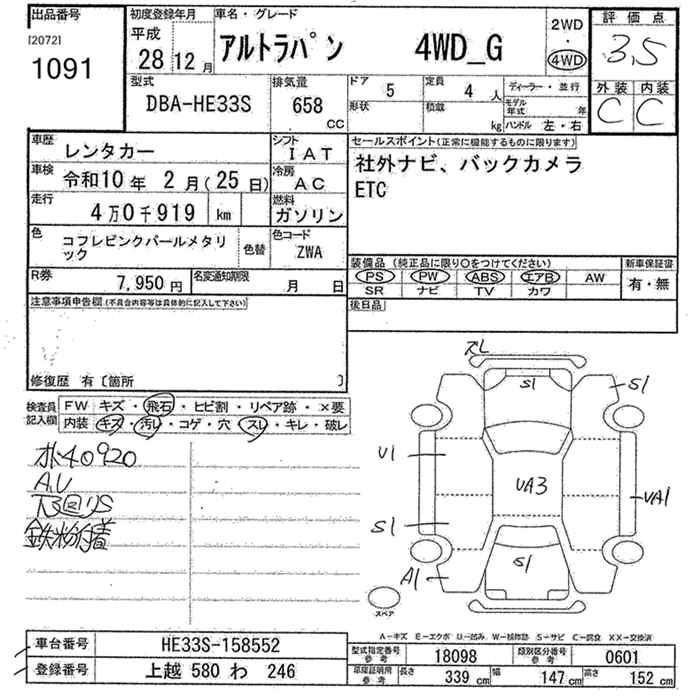 出品番号
[2072]
1091
初度登録年月
平成
28年12月
車名・グレード
アルトラパン 4WD_G
2WD
・
4WD
評価点
3.5
外装 内装
C C
型式
DBA-HE33S
排気量
658
CC
ドア 5
形状
定員 4 人
積載 kg
ディーラー・並行
モデル年式 年
ハンドル 左・右
車歴 レンタカー
シフト IAT
車検 令和10年 2月(25日)
冷房 AC
走行 4万0千919 km
燃料 ガソリン
色 コフレピンクパールメタリック
色替
色コード ZWA
R券 7,950円
名変通知期限 月 日
セールスポイント(正常に機能するものに限ります)
社外ナビ、バックカメラ
ETC
装備品(純正品に限り○をつけてください)
新車保証書
PS PW ABS エアB AW
SR ナビ TV カワ
有・無
後日品
注意事項申告欄(不具合内容等は具体的に記入して下さい)
修復歴 有〔箇所 〕
検査員記入欄
FW キズ・飛石・ヒビ割・リペア跡・×要
内装 キズ・汚レ・コゲ・穴・スレ・キレ・破レ
ホ40920
A,U
下回りS
鉄粉付着
スレ
S1
S1
U1
UA3
UA1
S1
S1
A1
スペア
A-キズ E-エクボ U-凹み W-補修跡 S-サビ C-腐食 XX-交換済
車台番号 HE33S-158552
登録番号 上越 580 わ 246
型式指定番号 参考 18098
類別区分番号 参考 0601
車庫証明用 参考
長さ 339 cm
幅 147 cm
高さ 152 cm